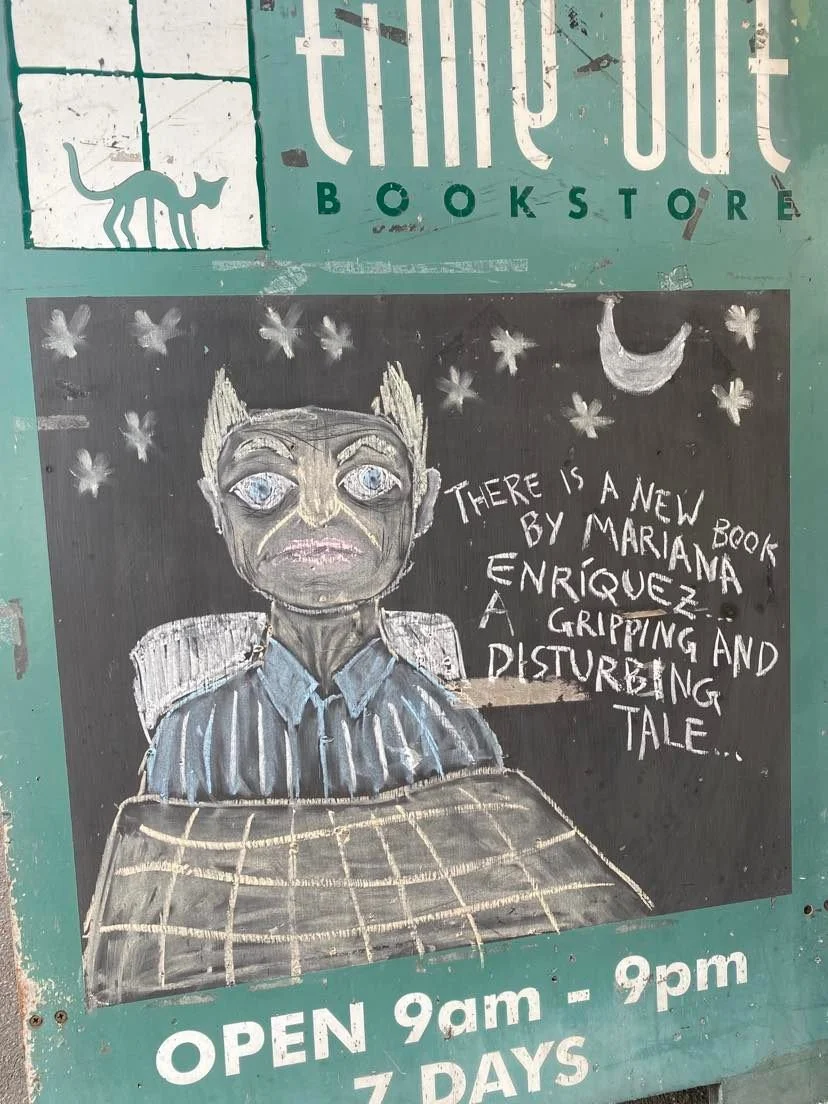 time out
BOOKSTORE
THERE IS A NEW BOOK
BY MARIANA
ENRÍQUEZ...
A GRIPPING AND
DISTURBING
TALE...
OPEN 9am - 9pm
7 DAYS